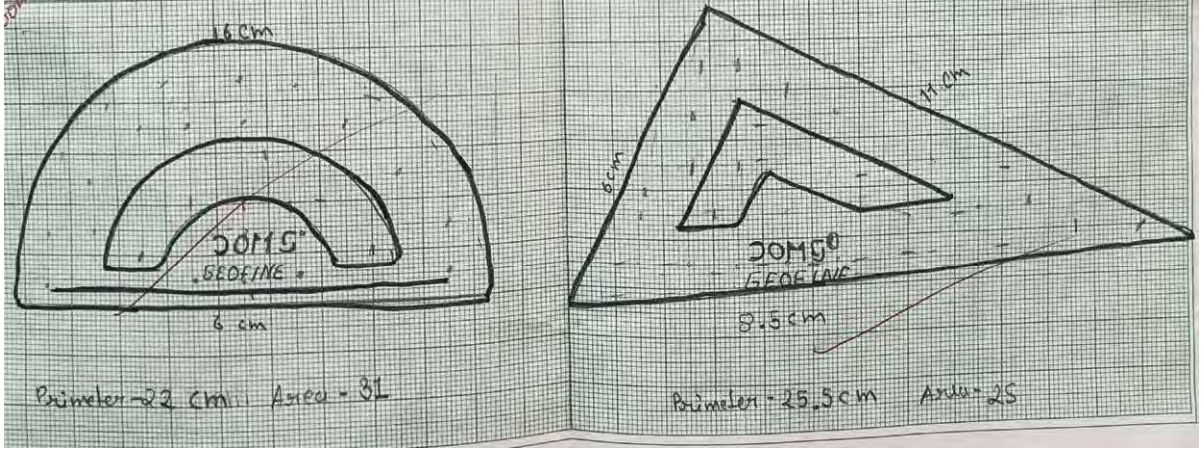 16 cm
DOMS
GEOFINE
6 cm
Primeter-22 cm Area - 31
6cm
11 cm
DOMS
GEOFINE
8.5cm
Primeter - 25.5cm Area - 25